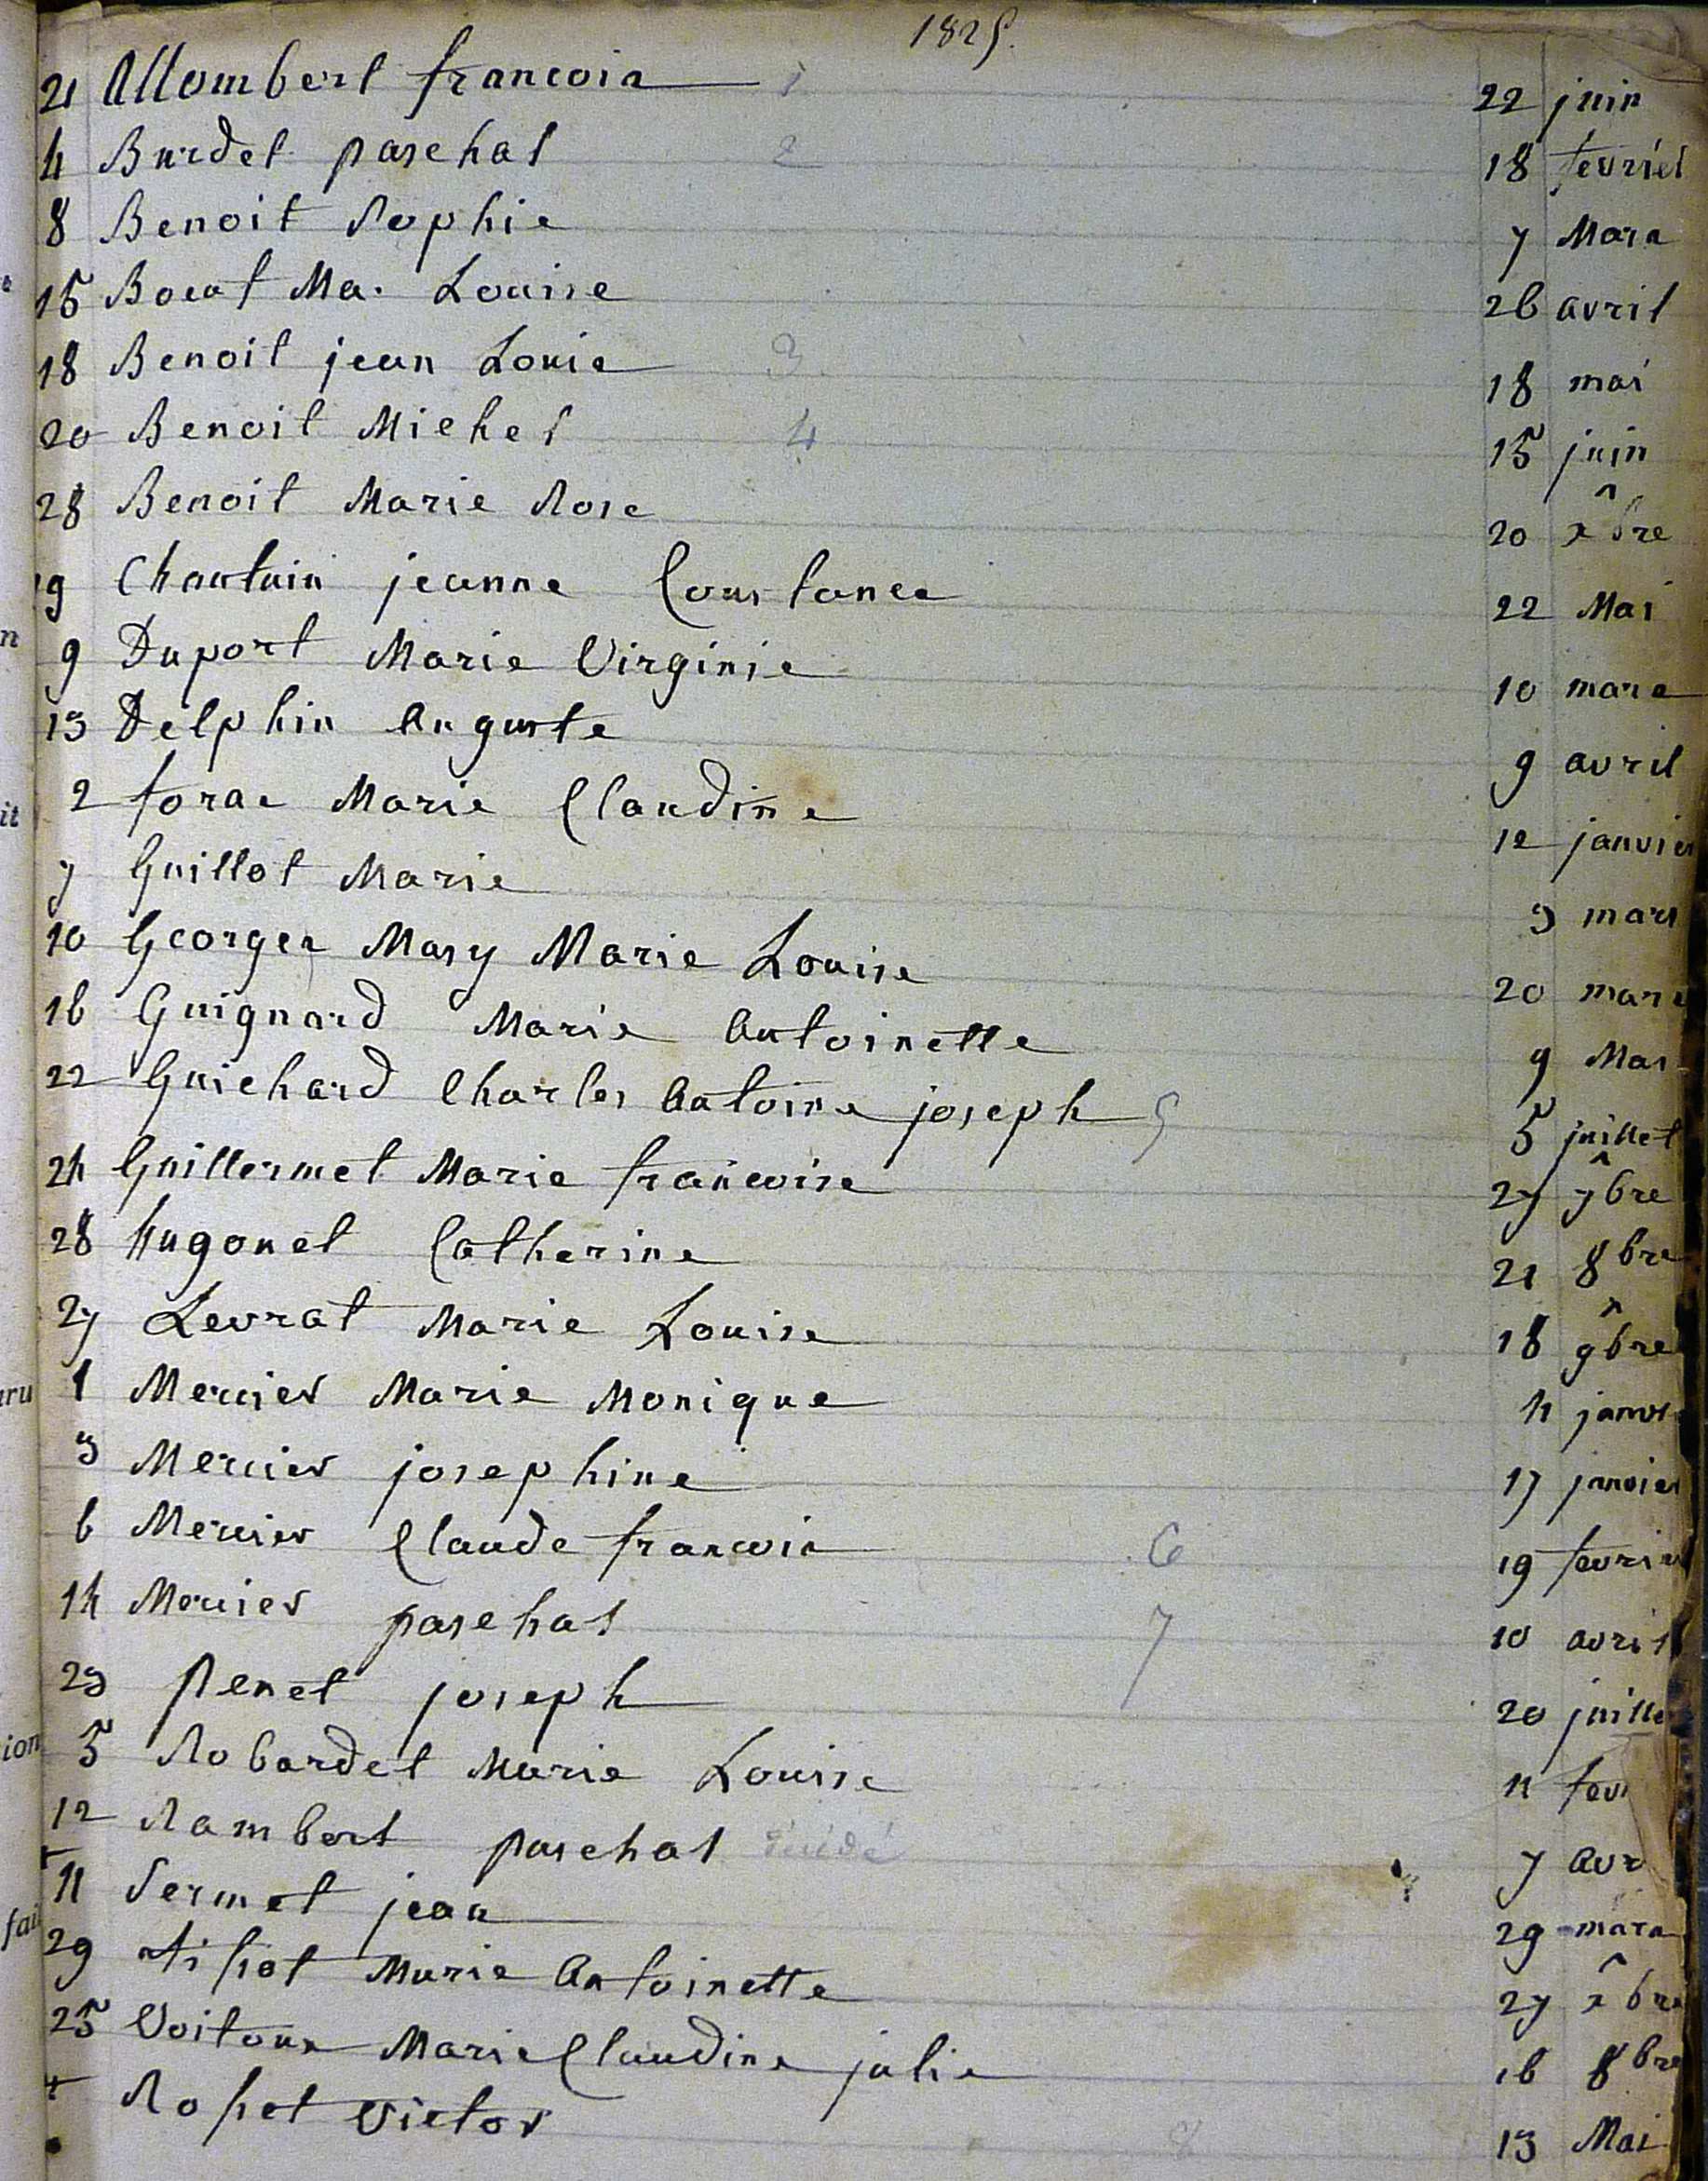 1825.
21 Allombert francois 1 22 juin
4 Burdet paschal 2 18 fevrier
8 Benoit Sophie 7 Mars
15 Bouat Ma. Louise 26 avril
18 Benoit jean Louis 3 18 mai
20 Benoit Michel 4 15 juin
28 Benoit Marie Rose 20 xbre
19 Chantain jeanne Constance 22 Mai
9 Duport Marie Virginie 10 mars
13 Delphin Auguste 9 avril
2 foras Marie Claudine 12 janvier
7 Guillot Marie 3 mars
10 Georges Mary Marie Louise 20 mars
16 Guignard Marie Antoinette 9 Mai
22 Guichard Charles Antoine joseph 5 5 juillet
24 Guillermet Marie francoise 27 7bre
28 hugonet Catherine 21 8bre
27 Levrat Marie Louise 18 9bre
1 Mercier Marie Monique 4 janvi
3 Mercier josephine 17 janvier
6 Mercier Claude francois 6 19 fevrier
14 Mercier paschal 7 10 avril
23 Penet joseph 20 juille
5 Robardet Marie Louise 11 fev
12 Rambert paschal 7 avr
11 Sermet jean 29 mars
29 tissot Marie Antoinette 27 xbre
25 Voitoux Marie Claudine julie 16 8bre
Rosset Victor 8 13 Mai